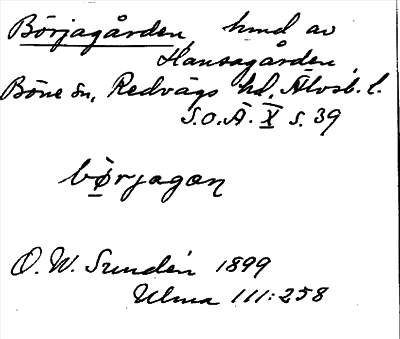 Börjagården, hmd av
Hansagården,
Böne sn, Redvägs hd, Älvsb. l.
S.O.Ä. X s. 39
bö̀rjagan
O. W. Sundén 1899
Ulma 111:258